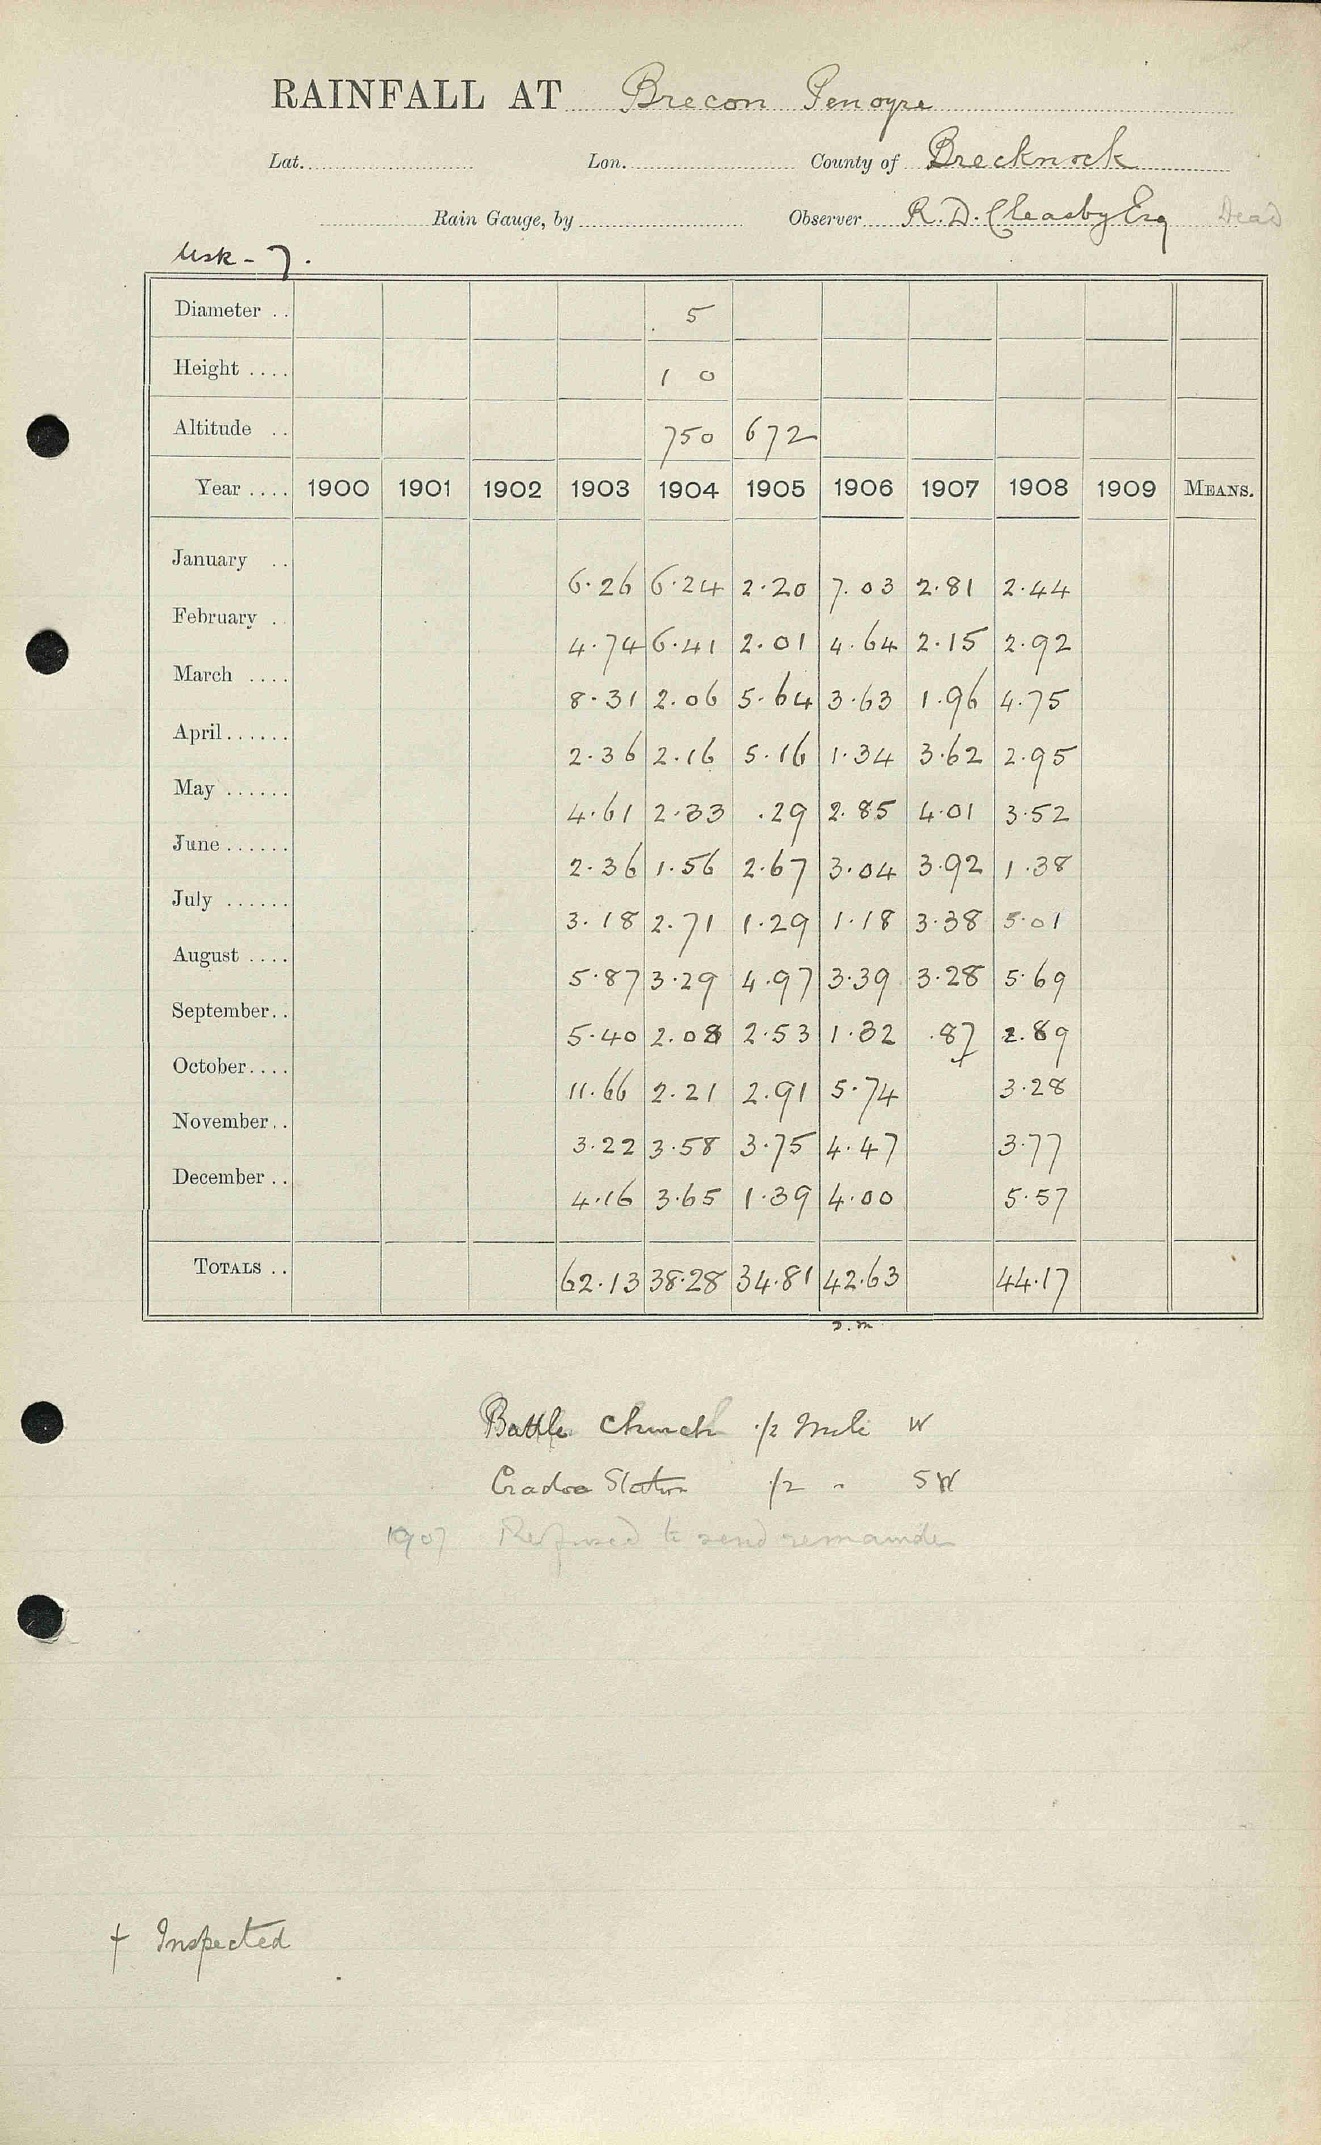 RAINFALL AT Brecon Penoyre
Lat. Lon. County of Brecknock
Rain Gauge, by Observer R. D. Cleasby Esq Dead
Usk - 7.
Diameter .. 5
Height .... 1 0
Altitude .. 750 672
Year .... 1900 1901 1902 1903 1904 1905 1906 1907 1908 1909 MEANS.
January .. 6.26 6.24 2.20 7.03 2.81 2.44
February . 4.74 6.41 2.01 4.64 2.15 2.92
March .... 8.31 2.06 5.64 3.63 1.96 4.75
April ...... 2.36 2.16 5.16 1.34 3.62 2.95
May ...... 4.61 2.33 .29 2.85 4.01 3.52
June ...... 2.36 1.56 2.67 3.04 3.92 1.38
July ...... 3.18 2.71 1.29 1.18 3.38 5.01
August .... 5.87 3.29 4.97 3.39 3.28 5.69
September .. 5.40 2.08 2.53 1.32 .87 2.89
October .... 11.66 2.21 2.91 5.74 3.28
November .. 3.22 3.58 3.75 4.47 3.77
December .. 4.16 3.65 1.39 4.00 5.57
TOTALS .. 62.13 38.28 34.81 42.63 44.17
Battle Church 1/2 Mile W
Cradoc Station 1/2 " SW
1907 Refused to send remainder
† Inspected